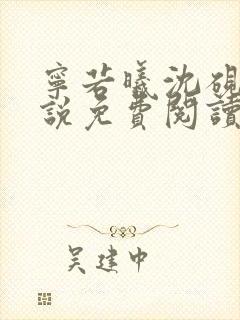 寧若曦沈硯
說免費閱讀
吴建中